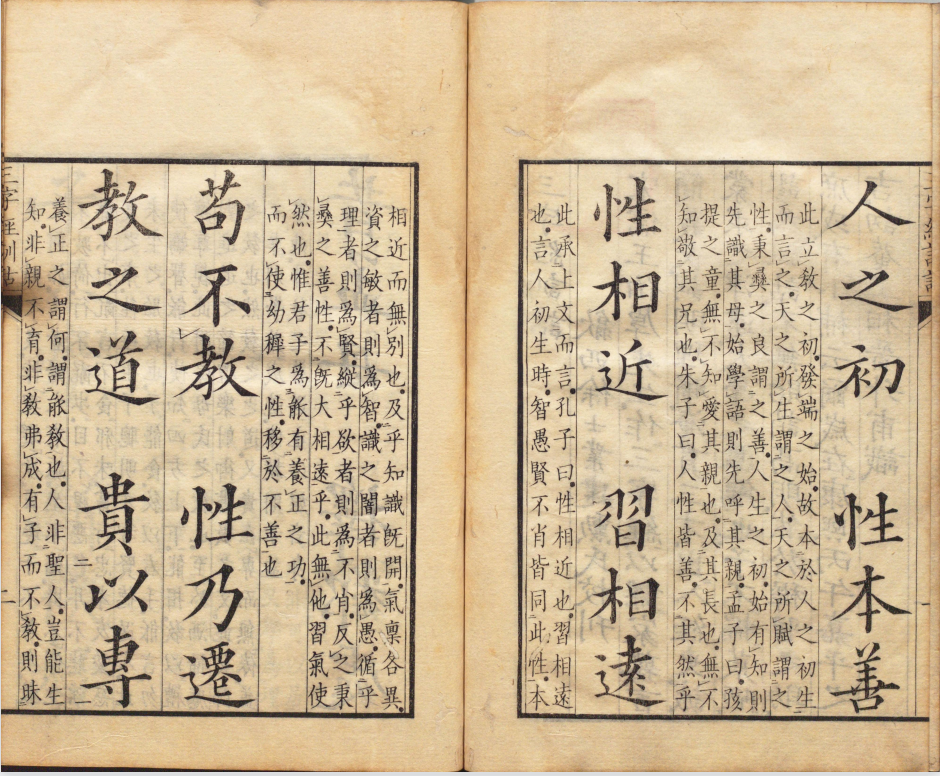 人之初 性本善
此立敎之初發端之始故本於人之初生
而言之天之所生謂之人天之所賦謂之
性秉彝之良謂之善人生之初始有知則
先識其母始學語則先呼其親孟子曰孩
提之童無不知愛其親也及其長也無不
知敬其兄也朱子曰人性皆善不其然乎
性相近 習相遠
此承上文而言孔子曰性相近也習相遠
也言人初生時智愚賢不肖皆同此性本
相近而無別也及乎知識旣開氣禀各異
資之敏者則爲智識之闇者則爲愚循乎
理者則爲賢縱乎欲者則爲不肖反之秉
彝之善性不旣大相遠乎此無他習氣使
然也惟君子爲能有養正之功
而不使幼穉之性移於不善也
苟不教 性乃遷
教之道 貴以專
養正之謂何謂能敎也人非聖人豈能生
知非親不育非敎弗成有子而不敎則昧
三字經訓詁